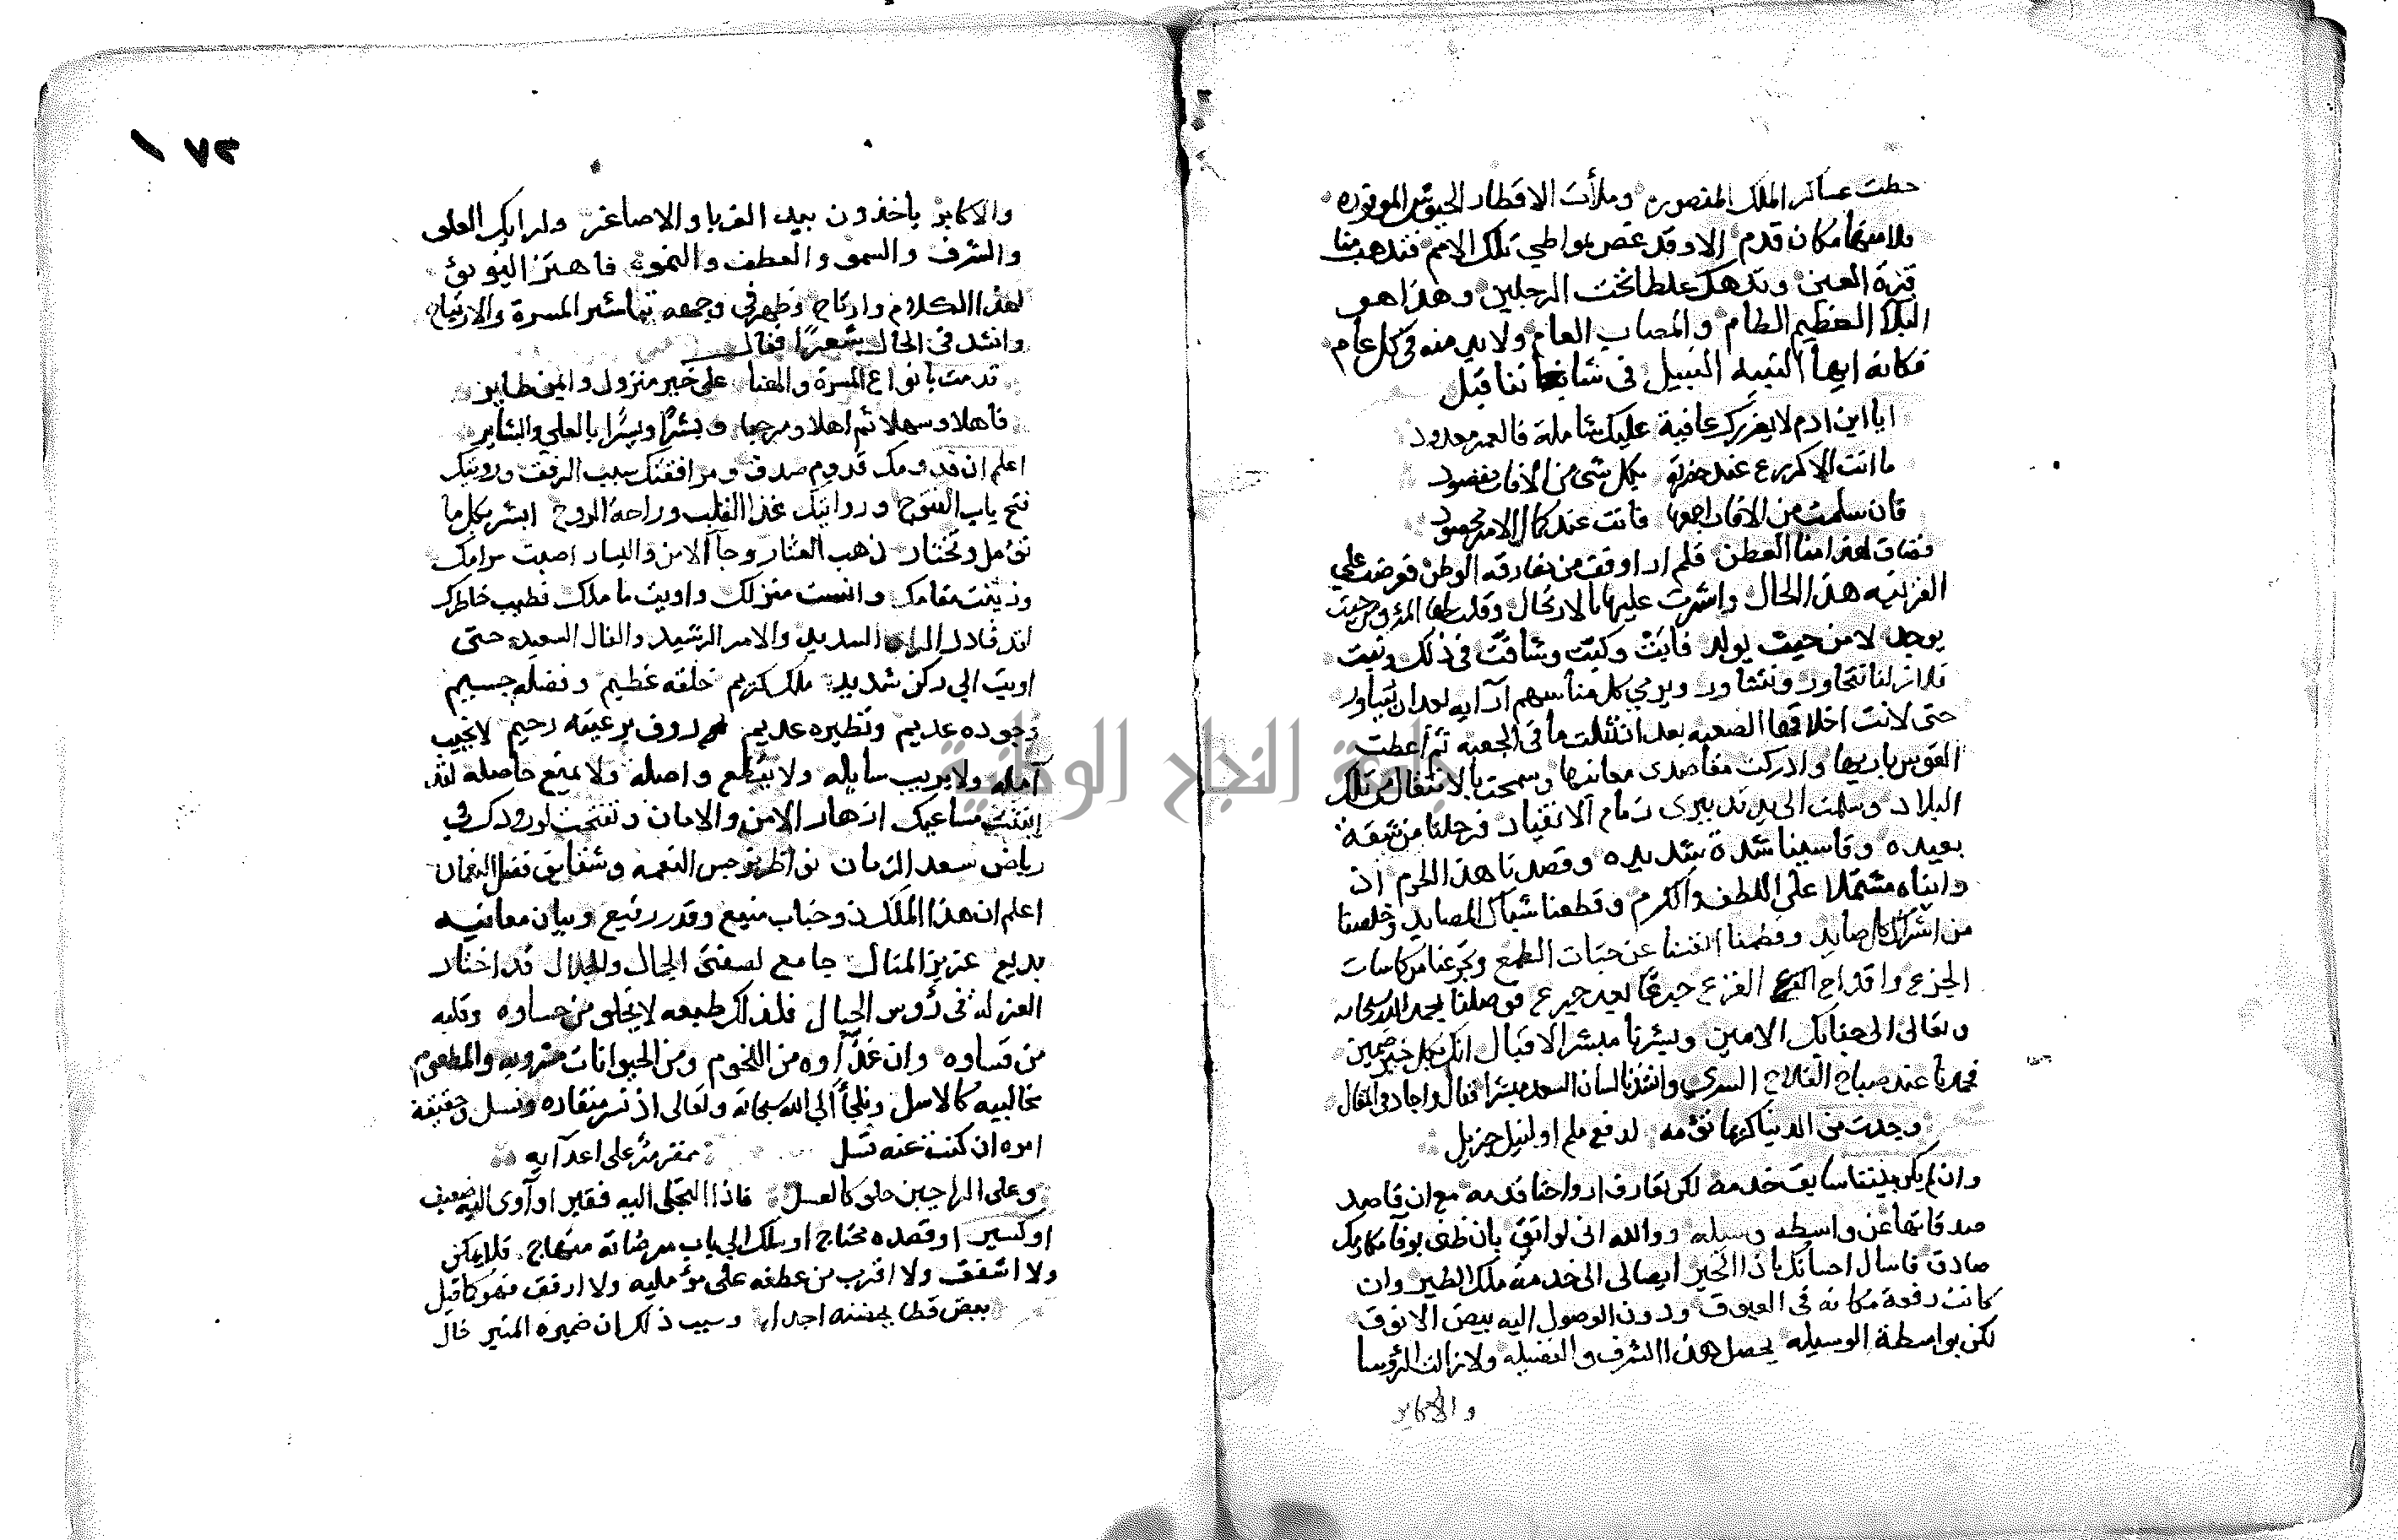 حطت عساكر الملك المنصوره وملأت الاقطار الجيوش الموفوره
فلا منها مكان قدم الا وقد غص بمواطي تلك الامم فتذهب منا
قرة العين وتدهك غلطا تحت الرجلين وهذا هو
البلاء العظيم الطام والمصاب العام ولا بد منه في كل عام
فكانه ايها النبيه النبيل في شاننا قيل
ايا ابن ادم لا يغررك عافية عليك شاملة فالعمر معدود
ما انت الا كزرع عند خضرته بكل شي من الافات مقصود
فان سلمت من الافات اجمعها فانت عند كمال الامر محصود
فضاق لهذا منا العطن فلم ار اوفق من مفارقه الوطن فعرضت علي
القرينه هذا الحال واشرت عليها بالارتحال وقلت لها المرؤ من حيث
يوجد لا من حيث يولد فابت وكنت وشاقت في ذلك ونبت
فلا زلنا نتحاور ونتشاور ويرمي كل منا سهم ارآيه
حتى لانت اخلاقها الصعبه بعد ان نثلت ما في الجعبه ثم اعطت
القوس باريها وادركت مقاصدي معانيها وسمحت بالانتقال من تلك
البلاد وسلمت الى يد تدبيري زمام الانقياد فرحلنا من شقة
بعيده وقاسينا شدة شديده وقصدنا هذا الحرم اذ
رايناه مشتملا على اللطف والكرم وقطعنا شباك المصايد وخلصنا
من اشراك كل صايد وفطمنا انفسنا عن حبات الطمع وتجرعنا من كاسات
الجزع واقداح الفزع جرعا بعد جرع فوصلنا بحمد الله سبحانه
وتعالى الى جنابك الامين وبشرنا مبشر الاقبال انك بكل خير ضمين
فحمدنا عند صباح الفلاح السري وانشدنا لسان السعد مبشرا فقال واجاد في المقال
وجدت من الدنيا كريما نؤمه لدفع ملم او لنيل جزيل
وان لم يكن بيننا سابق خدمه لكن تعارف ارواحنا قدمه مع ان قاصد
صدقاتها عن واسطه وسيله ووالله اني لواثق بان ظني بوفآ مكارمك
صادق فاسال احسانك ياذا الخير ايصالي الى خدمة ملك الطير وان
كانت رفعة مكانه في العيوق ودون الوصول اليه بيض الانوق
لكن بواسطة الوسيله يحصل هذا الشرف والفضيله ولا زالت الرؤسا
والاكابر
١٧٢
والاكابر ياخذون بيد الغربا والاصاغر العلى
والشرف والسمو والعطف والنمو فاهتز اليؤيؤ
لهذا الكلام وارتاح وظهر في وجهه تباشير المسرة والارتياح
وانشد في الحال شعرًا فقال
قدمت بانواع المسرة والهنا على خير منزول وايمن طاير
فاهلا وسهلا ثم اهلا ومرحبا وبشرا ويسرا بالعلى والبشاير
اعلم ان قدومك قدوم صدق ومرافقتك سبب الرفق ورويتك
فتح باب الفتوح وروايتك غذا القلب وراحة الروح ابشر بكل ما
تؤمل وتختار ذهب العثار وجآ الامن واليسار اصبت مرامك
وزينت مقامك وانست منزلك واويت ما ملك فطيب خاطرك
لقد قادك الراي السديد والامر الرشيد والفال السعيد حتى
اويت الي ركن شديد ملك كريم خلقه عظيم وفضله جسيم
وجوده عديم ونظيره عديم رووف برعيته رحيم لا يخيب
آمله ولا يريب سايله ولا يقطع واصله ولا يمنع حاصله
مساعيك ازهار الامن والامان وتفتحت لورودك في
رياض سعد الزمان نواظر نرجس النعمه وشقايق فضل النعمان
اعلم ان هذا الملك ذو جناب منيع وقدر رفيع وبيان معانيه
بديع عزيز المنال جامع لصفتى الجمال والجلال قد اختار
العزله في رؤس الجبال فلذلك طبعه لا يخلو من جساوه وقلبه
من قساوه وان غذآوه من اللحوم ومن الحيوانات مشروبه والمطعوم
مخالبيه كالاسل ونلجأ الى الله سبحانه وتعالى اذ نسر منقاره ونسل وحقيقة
امره ان كنت عنه تسل ممقر مر على اعدآيه
وعلى الراجين حلو كالعسل فاذا التجى اليه فقير او آوى اليه ضعيف
او كسير او قصده محتاج او سلك الي باب مرضاته منهاج فلا يمكن
ولا اشفق ولا اقرب من عطفه على مؤمليه ولا ارفق فهو كما قيل
بيض قطا يحضنه اجدل وسبب ذلك ان ضميره المنير خال
جامعة النجاح الوطنية